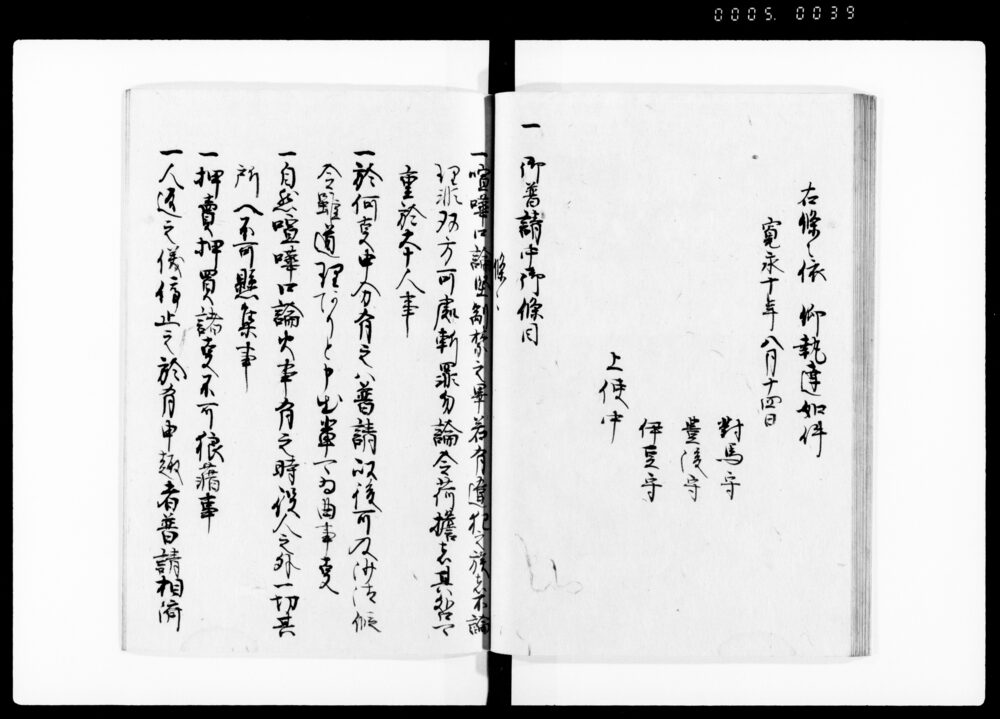 0005. 0039
右條々依 仰執達如件
寛永十年八月十四日
對馬守
豊後守
伊豆守
上使中
一 御普請中御條目
條々
一喧嘩口論堅制禁之畢若有違犯之族者不論
理非双方可處斬罪勿論令荷擔者其咎可
重於本人事
一於何事申分有之ハ普請以後可及沙汰假
令雖道理たりと申出輩可為曲事事
一自然喧嘩口論火事有之時役人之外一切其
所へ不可懸集事
一押賣押買諸事不可狼藉事
一人返之儀停止之於有申趣者普請相濟